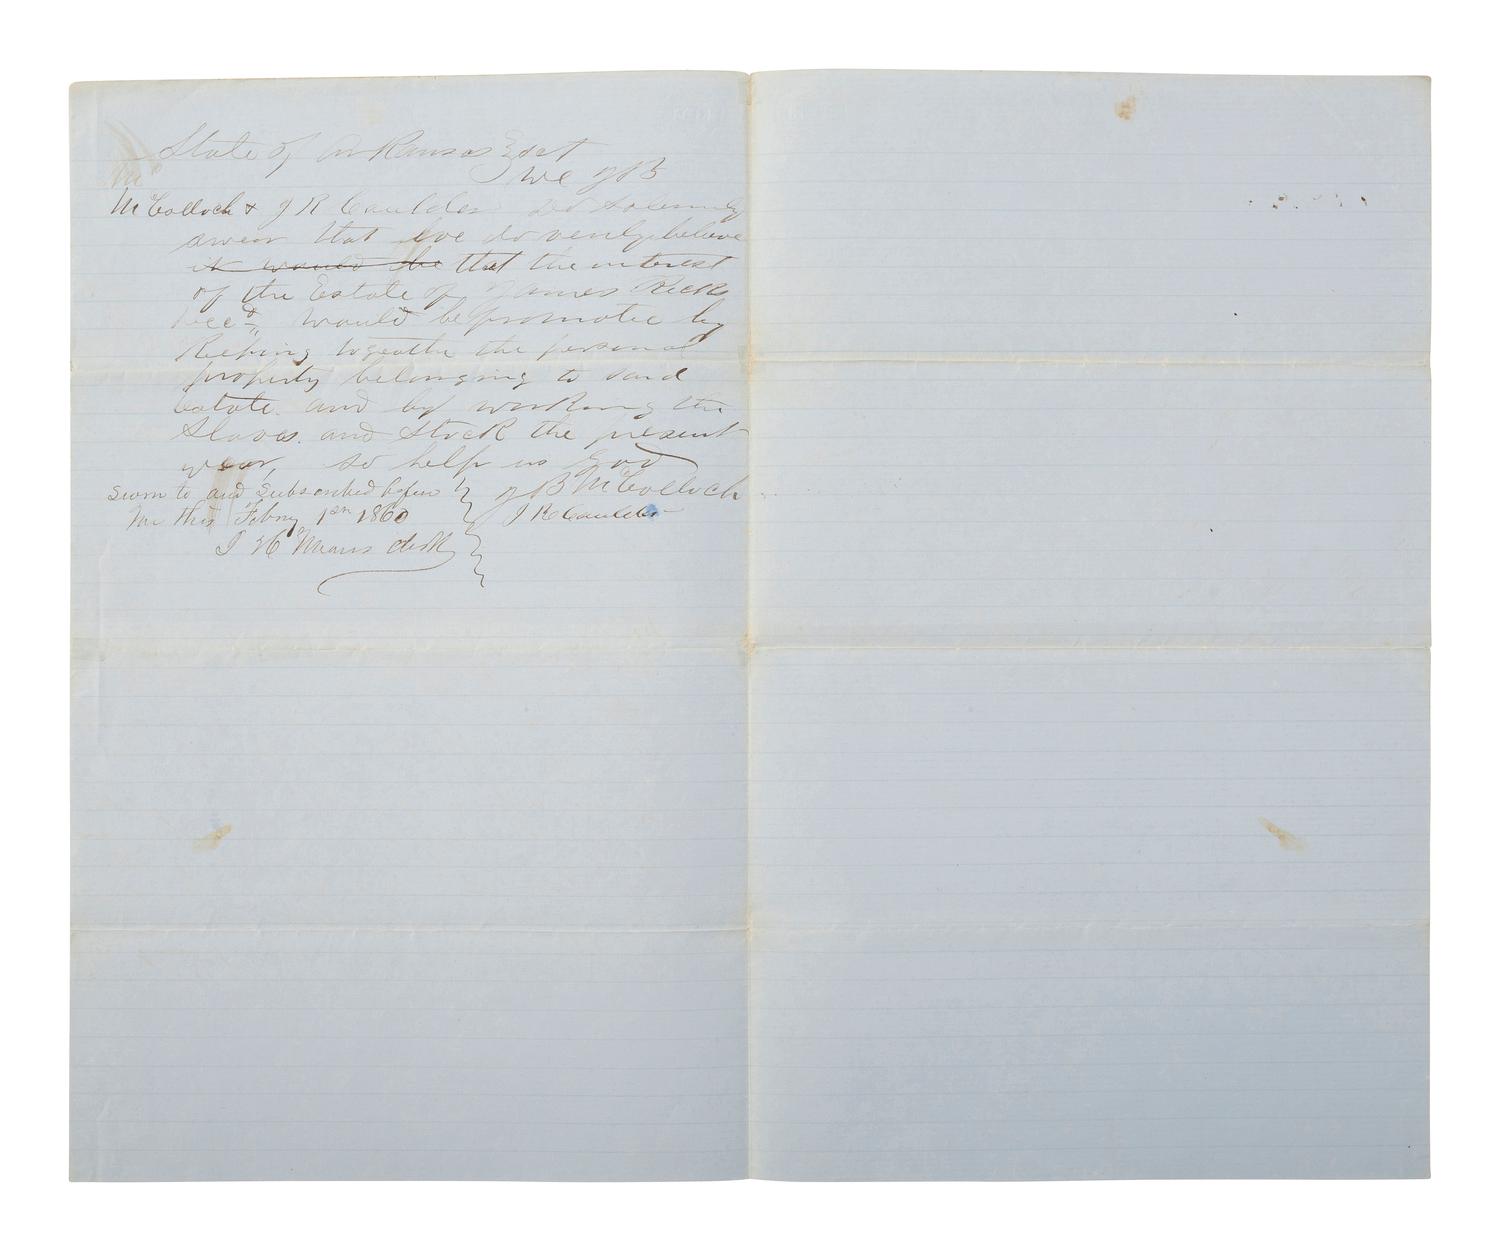 State of Arkansas } Sct
We J B
Mc
McColloch & J R Caulder do solemnly
swear that we do verily believe
it would be that the interest
of the Estate of James Ricks
Decd, would be promotic by
Keeping togeathe the personal
property belonging to said
Estate and by working the
Slaves. and Stock the present
year, so help us God
Sworn to and Subscribed before } J B McColloch
Me this Febry 1st 1860 } J R Caulder
J H Means clerk